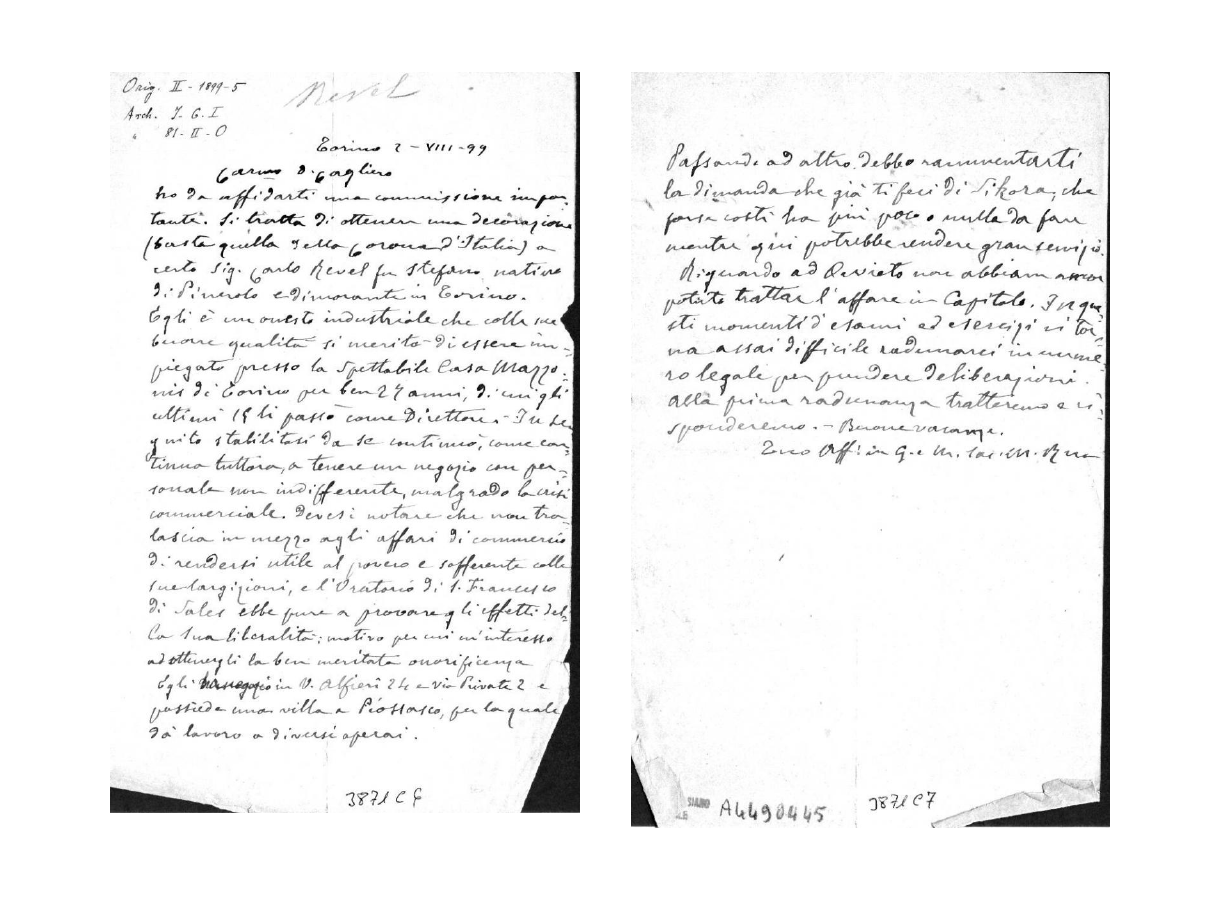 Orig. II - 1899-5
Arch. J. G. I
" 81-II-O
Revel
Torino 2-VIII-99
Carmo D. Cagliero
ho da affidarti una commissione impor-
tante. Si tratta di ottenere una decorazione
(basta quella della Corona d'Italia) a
certo Sig. Carlo Revel fu Stefano nativo
di Pinerolo e dimorante in Torino.
Egli è un onesto industriale che colle sue
buone qualità si meritò di essere im-
piegato presso la Spettabile Casa Mazzo-
nis di Torino per ben 27 anni, di cui gli
ultimi 15 li passò come Direttore. - In se
guito stabilitosi da se continuò, come con-
tinua tuttora, a tenere un negozio con per-
sonale non indifferente, malgrado la crisi
commerciale. Devesi notare che non tra-
lascia in mezzo agli affari di commercio
di rendersi utile al povero e sofferente colle
sue largizioni, e l'Oratorio di S. Francesco
di Sales ebbe pure a provare gli effetti del-
la sua liberalità; motivo per cui m'interesso
ad ottenergli la ben meritata onorificenza
Egli in V. Alfieri 24 e via Private 2 e
possiede una villa a Piossasco, per la quale
dà lavoro a diversi operai.
3871 C 6
Passando ad altro debbo rammentarti
la dimanda che già ti feci di Sikora, che
forse costì ha più poco o nulla da fare
mentre qui potrebbe rendere gran servizio.
Riguardo ad Orvieto non abbiam ancor
potuto trattar l'affare in Capitolo. In que-
sti momenti d'esami ed esercizi ci tor-
na assai difficile radunarci in nume-
ro legale per prendere deliberazioni.
Alla prima radunanza tratteremo e ri-
sponderemo. - Buone vacanze.
Tuo Aff. in G. e M. Sac. M. Rua
SIANO
A4490445
3871 C7